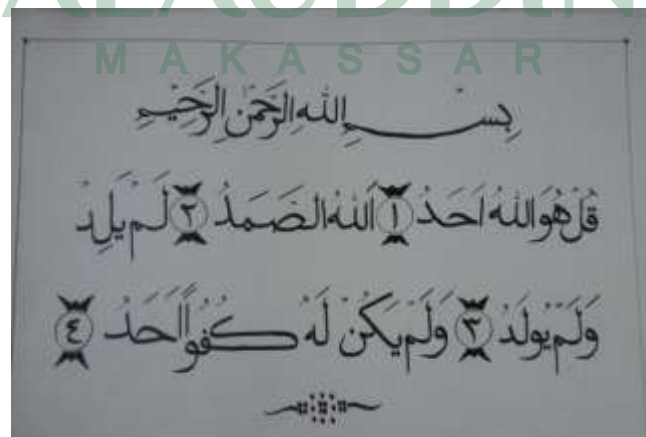 ALAUDDIN
MAKASSAR
بِسْــــمِ اللهِ الرَّحْمٰنِ الرَّحِيْمِ
قُلْ هُوَ اللهُ اَحَدٌ ١ اَللهُ الصَّمَدُ ٢ لَمْ يَلِدْ
وَلَمْ يُولَدْ ٣ وَلَمْ يَكُنْ لَهُ كُفُوًا اَحَدٌ ٤